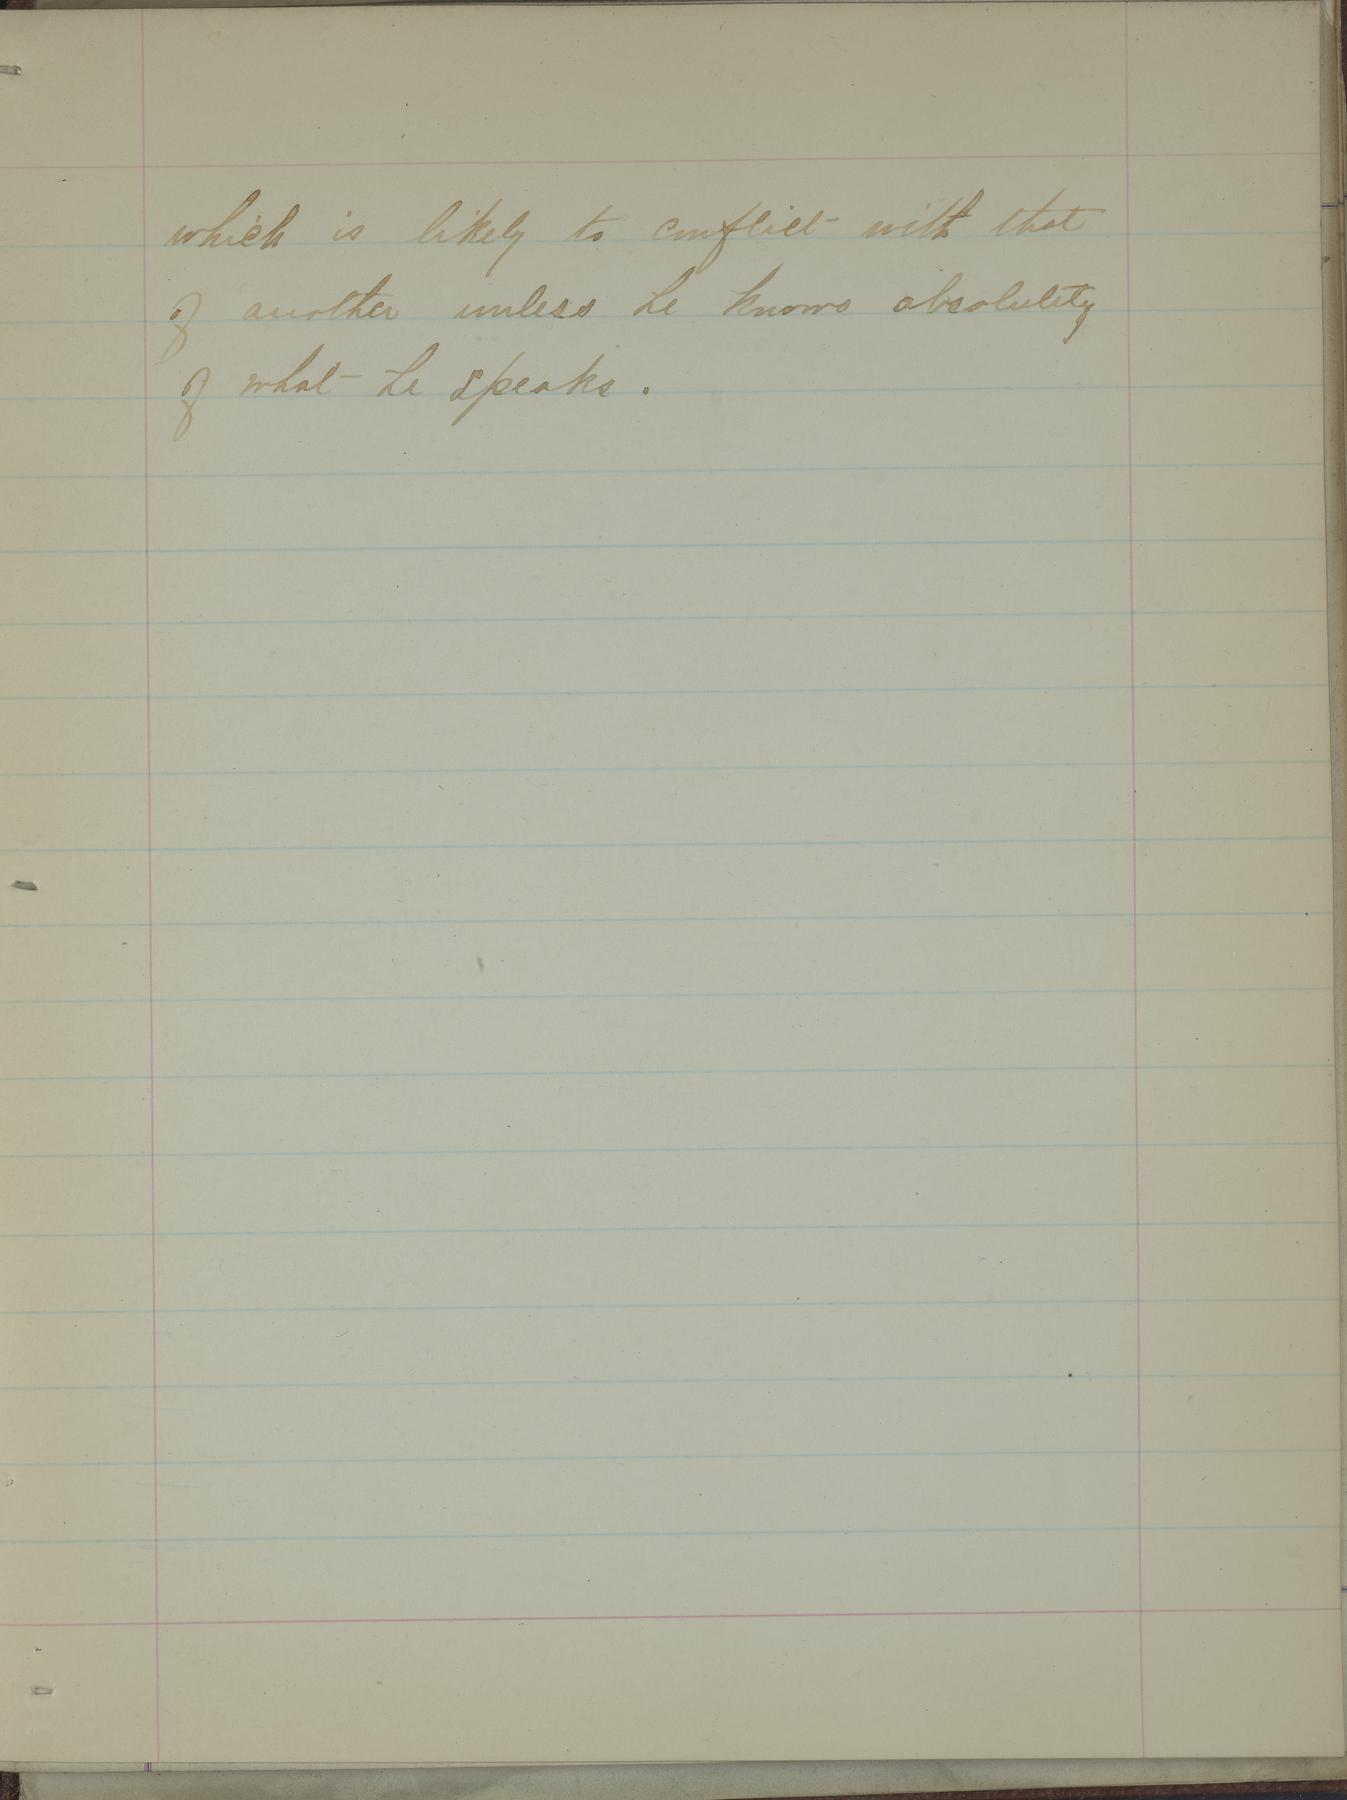 which is likely to conflict with that
of another unless he knows absolutely
of what he speaks.